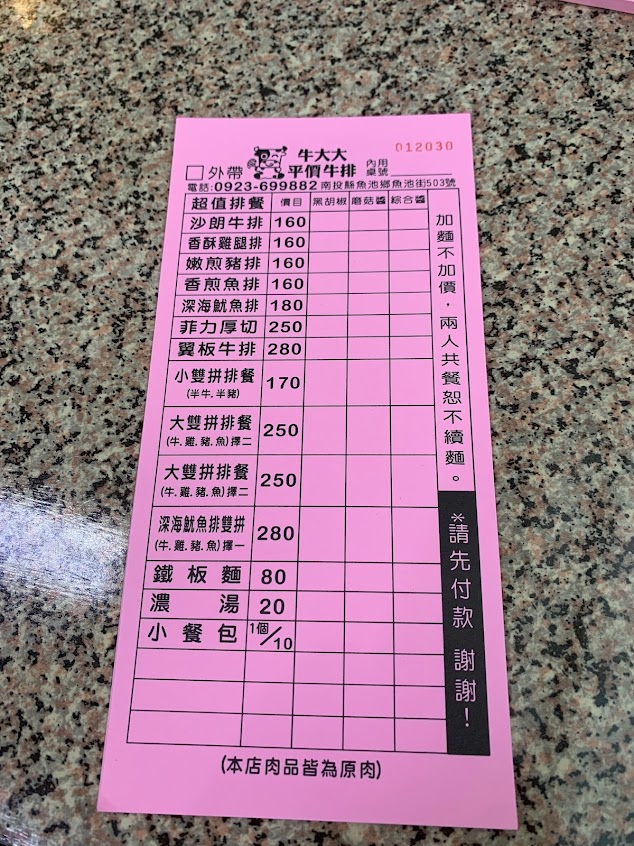 牛大大
012030
□外帶
平價牛排
內用
桌號
電話:0923-699882 南投縣魚池鄉魚池街503號
超值排餐 價目 黑胡椒 蘑菇醬 綜合醬
沙朗牛排 160
香酥雞腿排 160
嫩煎豬排 160
香煎魚排 160
深海魷魚排 180
菲力厚切 250
翼板牛排 280
小雙拼排餐 170
(半牛.半豬)
大雙拼排餐 250
(牛.雞.豬.魚)擇二
大雙拼排餐 250
(牛.雞.豬.魚)擇二
深海魷魚排雙拼 280
(牛.雞.豬.魚)擇一
鐵板麵 80
濃湯 20
小餐包 1個/10
加麵不加價,兩人共餐恕不續麵。
*請先付款 謝謝!
(本店肉品皆為原肉)